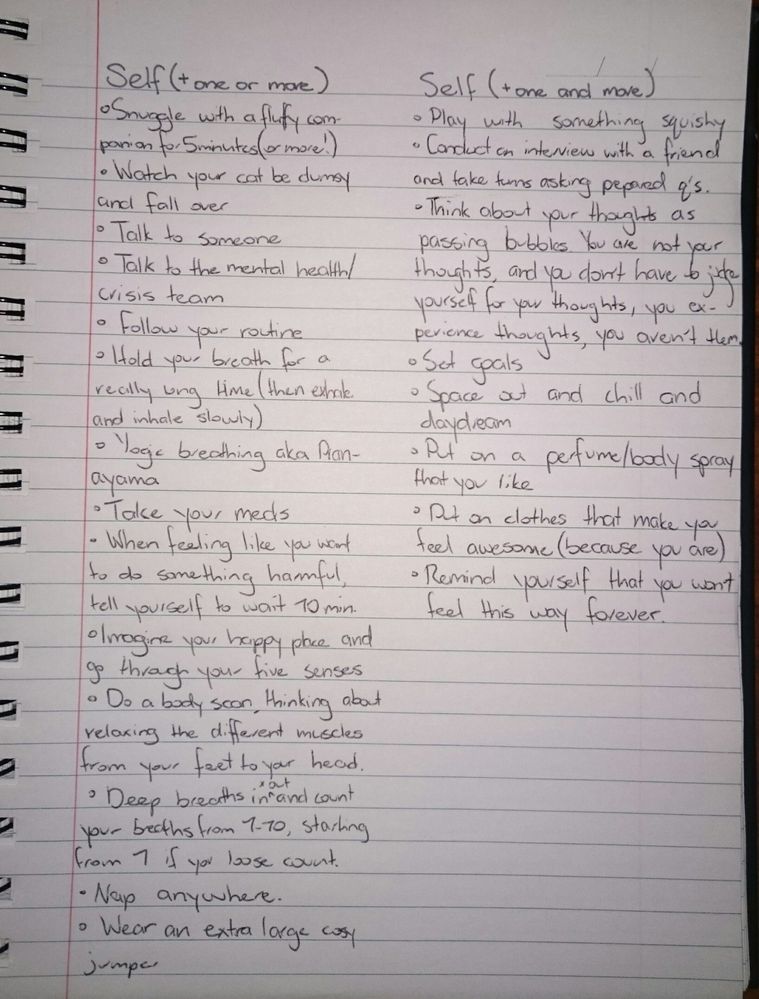 Self (+ one or more)
• Snuggle with a fluffy com-
panion for 5 minutes (or more!)
• Watch your cat be clumsy
and fall over
• Talk to someone
• Talk to the mental health/
crisis team
• Follow your routine
• Hold your breath for a
really long time (then exhale
and inhale slowly)
• Yogic breathing aka Pran-
ayama
• Take your meds
• When feeling like you want
to do something harmful,
tell yourself to wait 10 min.
• Imagine your happy place and
go through your five senses
• Do a body scan, thinking about
relaxing the different muscles
from your feet to your head.
• Deep breaths in x out and count
your breaths from 1-10, starting
from 1 if you loose count.
• Nap anywhere.
• Wear an extra large cosy
jumper
Self (+ one and more)
• Play with something squishy
• Conduct an interview with a friend
and take turns asking pepared q's.
• Think about your thoughts as
passing bubbles. You are not your
thoughts, and you don't have to judge
yourself for your thoughts, you ex-
perience thoughts, you aren't them.
• Set goals
• Space out and chill and
daydream
• Put on a perfume/body spray
that you like
• Put on clothes that make you
feel awesome (because you are)
• Remind yourself that you won't
feel this way forever.